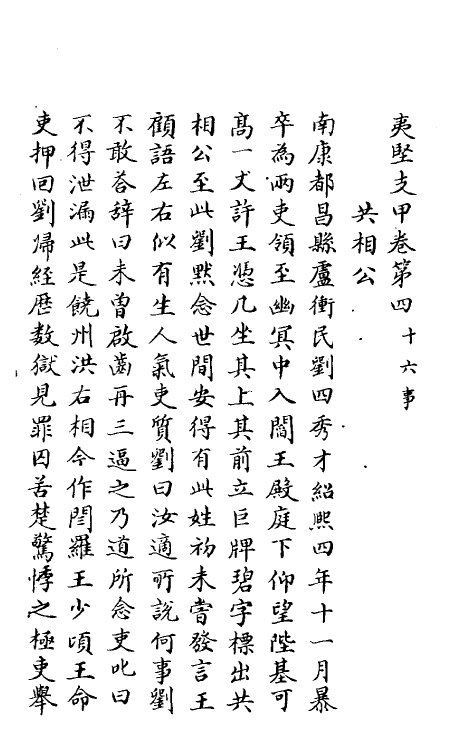 夷堅支甲卷第四十六事
共相公
南康都昌縣盧衝民劉四秀才紹熙四年十一月暴
卒為兩吏領至幽冥中入閻王殿庭下仰望陛基可
高一丈許王憑几坐其上其前立巨牌碧字標出共
相公至此劉默念世間安得有此姓初未嘗發言王
顧語左右似有生人氣吏質劉曰汝適所說何事劉
不敢荅辞曰未曾啟齒再三逼之乃道所念吏叱曰
不得泄漏此是饒州洪右相今作閻羅王少頃王命
吏押回劉歸經歷数獄見罪囚苦楚驚悸之極吏舉